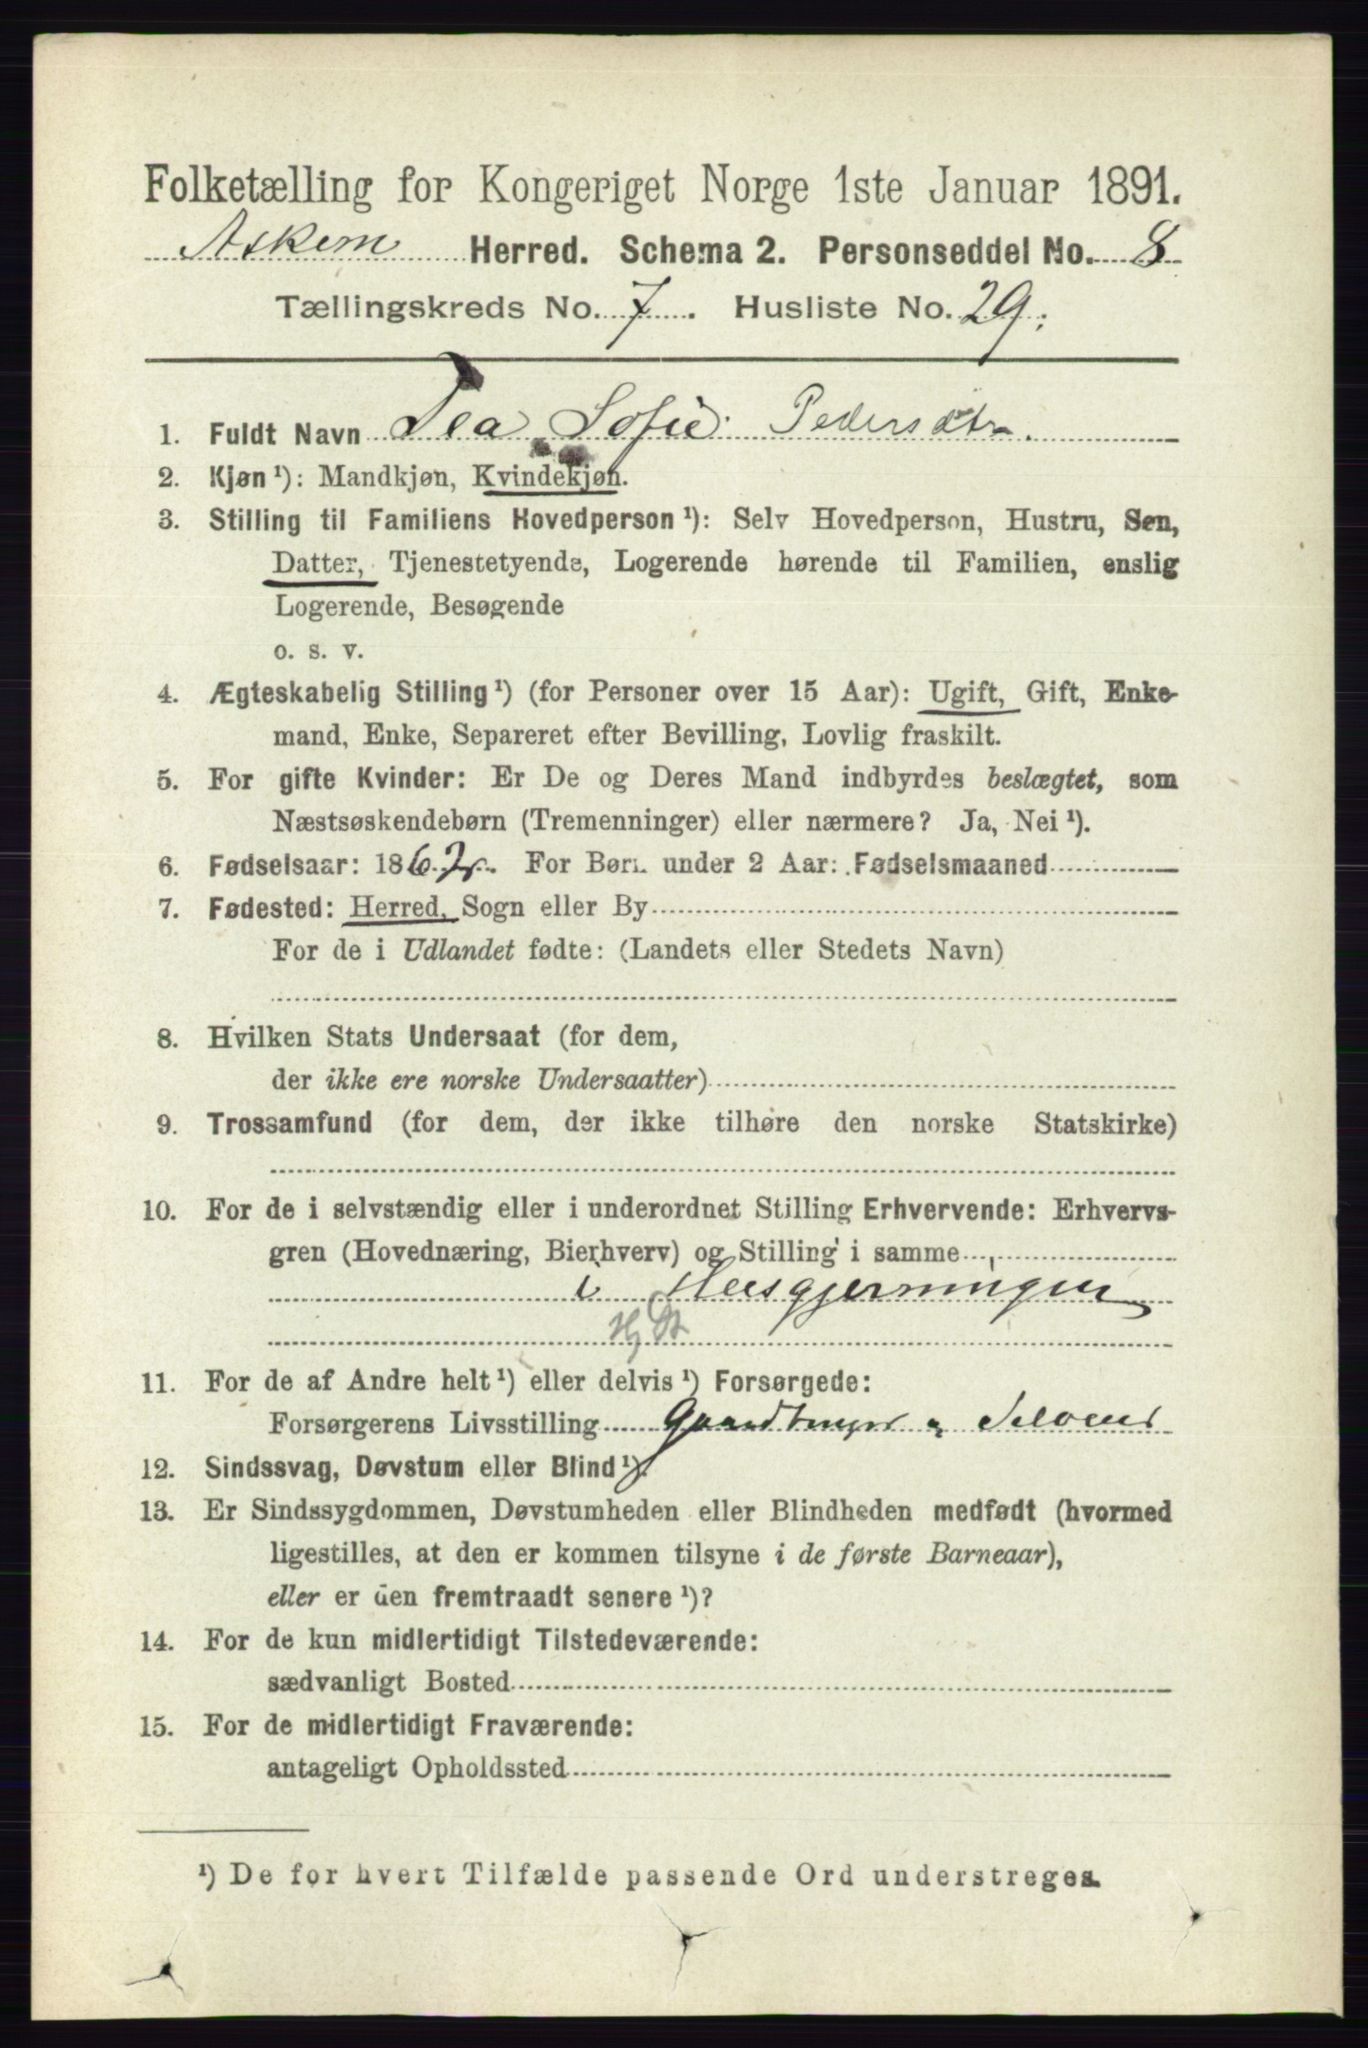 Folketælling for Kongeriget Norge 1ste Januar 1891.
Askem Herred. Schema 2. Personseddel No. 8
Tællingskreds No. 7. Husliste No. 29.
1. Fuldt Navn Pea Sofie Pedersdtr.
2. Kjøn¹): Mandkjøn, Kvindekjøn.
3. Stilling til Familiens Hovedperson¹): Selv Hovedperson, Hustru, Søn,
Datter, Tjenestetyende, Logerende hørende til Familien, enslig
Logerende, Besøgende
o. s. v.
4. Ægteskabelig Stilling¹) (for Personer over 15 Aar): Ugift, Gift, Enke-
mand, Enke, Separeret efter Bevilling, Lovlig fraskilt.
5. For gifte Kvinder: Er De og Deres Mand indbyrdes beslægtet, som
Næstsøskendebørn (Tremenninger) eller nærmere? Ja, Nei¹).
6. Fødselsaar: 1862. For Børn under 2 Aar: Fødselsmaaned
7. Fødested: Herred, Sogn eller By
For de i Udlandet fødte: (Landets eller Stedets Navn)
8. Hvilken Stats Undersaat (for dem,
der ikke ere norske Undersaatter)
9. Trossamfund (for dem, der ikke tilhøre den norske Statskirke)
10. For de i selvstændig eller i underordnet Stilling Erhvervende: Erhvervs-
gren (Hovednæring, Bierhverv) og Stilling i samme
i Huusgjerningen
11. For de af Andre helt¹) eller delvis¹) Forsørgede:
Forsørgerens Livsstilling Gaardbruger og Selveier
12. Sindssvag, Døvstum eller Blind¹).
13. Er Sindssygdommen, Døvstumheden eller Blindheden medfødt (hvormed
ligestilles, at den er kommen tilsyne i de første Barneaar),
eller er den fremtraadt senere¹)?
14. For de kun midlertidigt Tilstedeværende:
sædvanligt Bosted
15. For de midlertidigt Fraværende:
antageligt Opholdssted
¹) De for hvert Tilfælde passende Ord understreges.